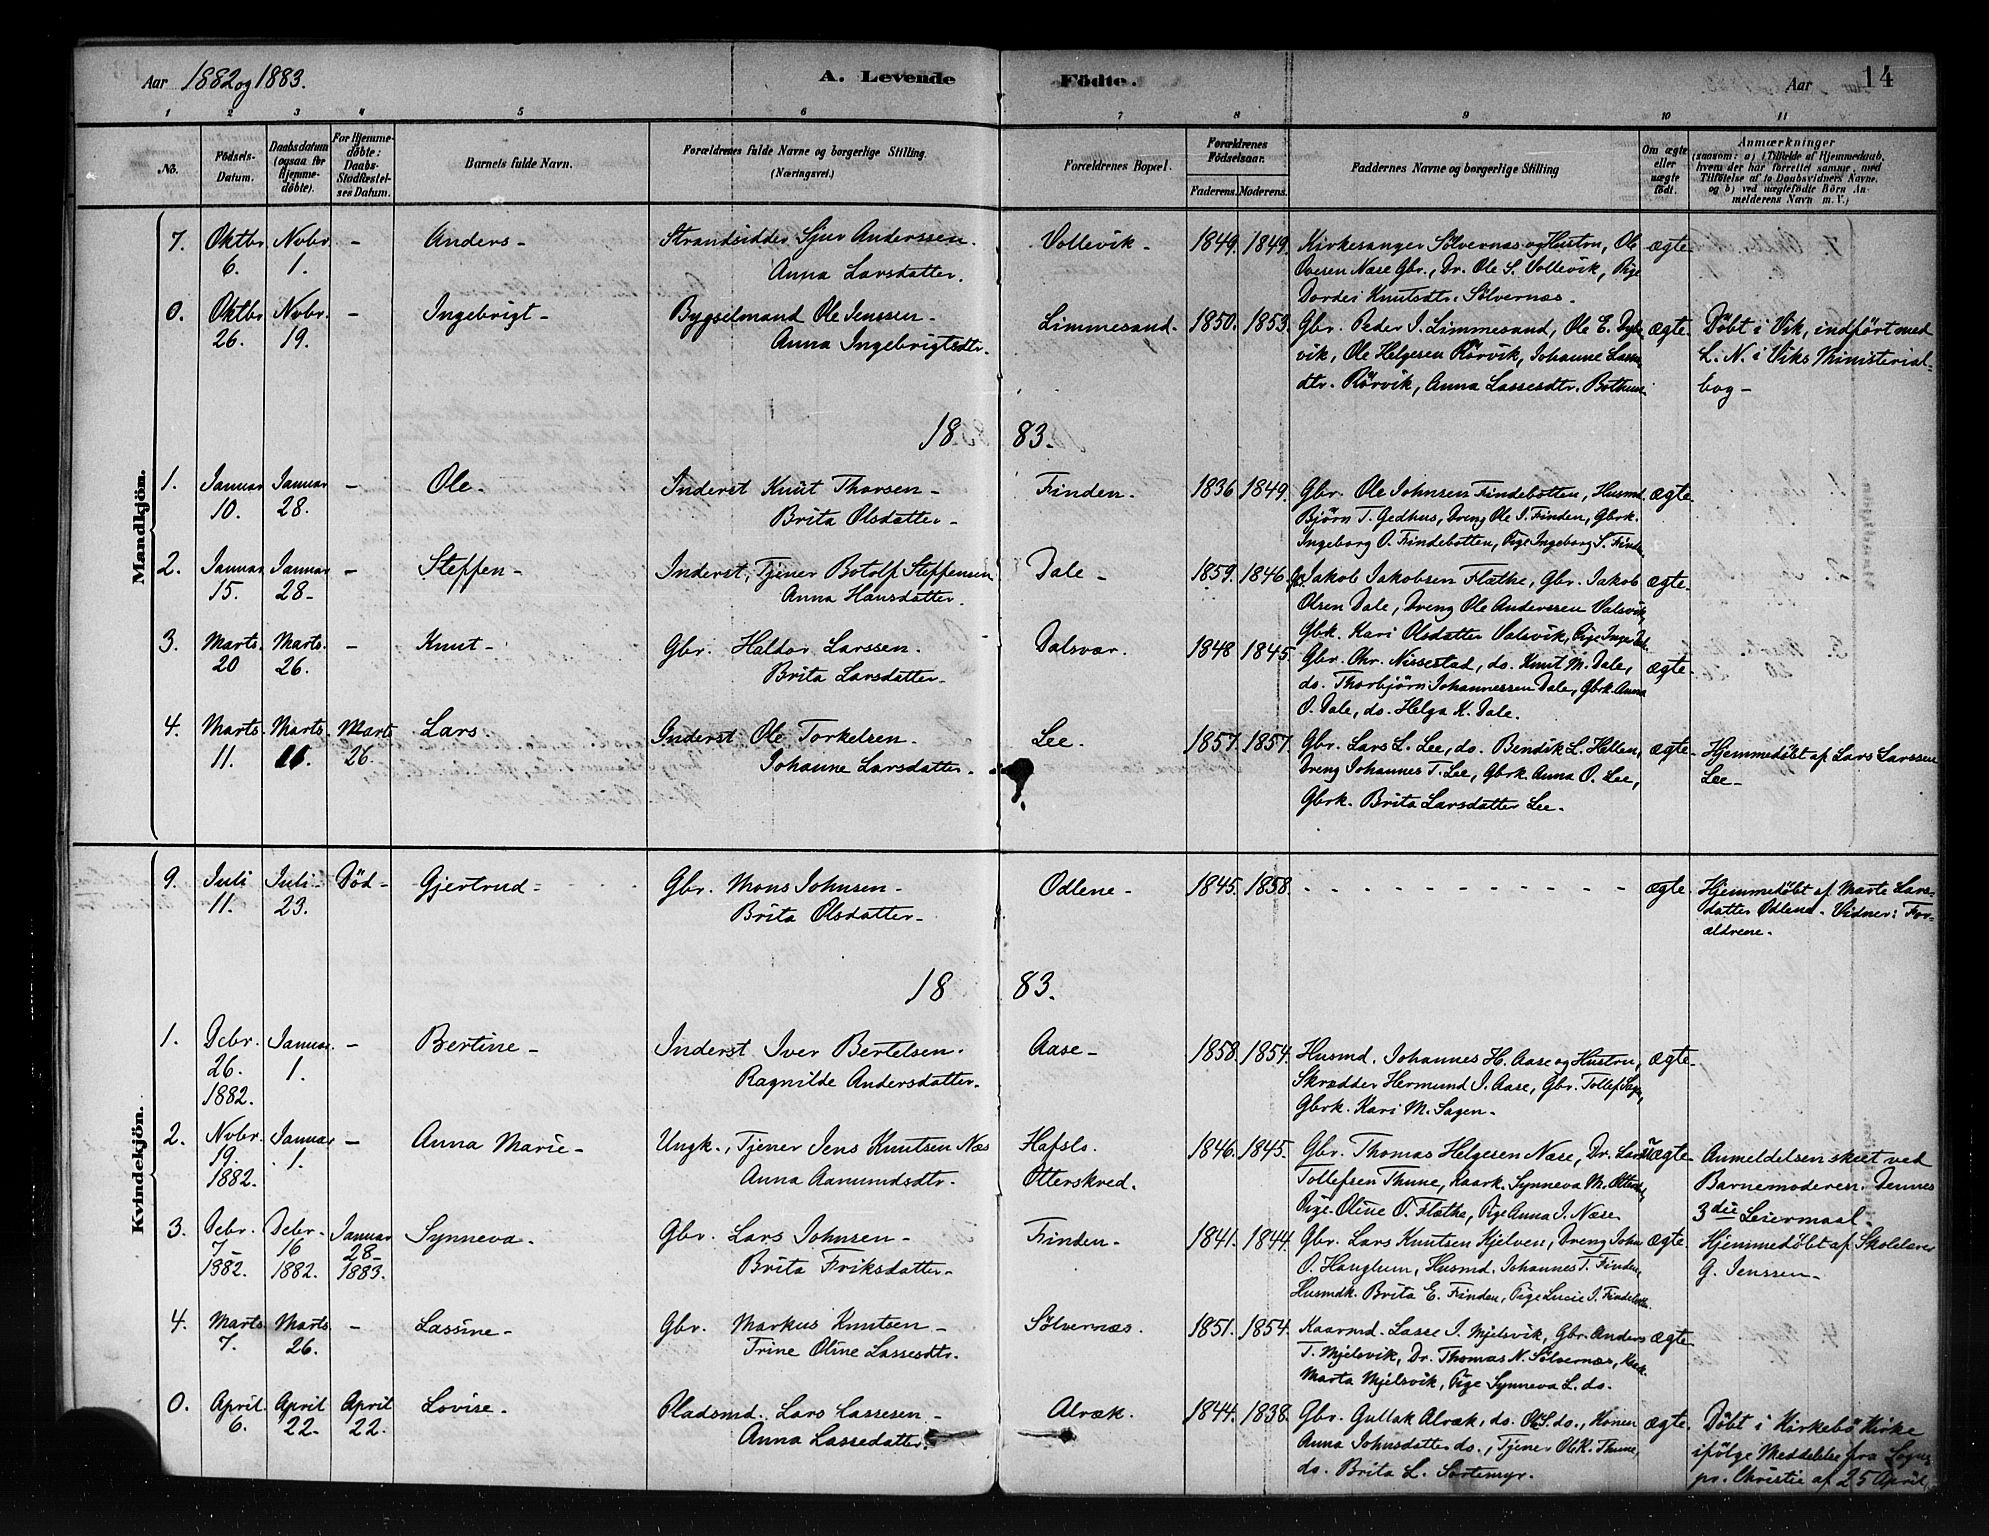 Aar 1882 og 1883. A. Levende Födte. Aar 14
1 2 3 4 5 6 7 8 9 10 11
No. Födsels-Datum. Daabsdatum (ogsaa for Hjemmedöbte). For Hjemmedöbte: Daabs-Stadfæstelses Datum. Barnets fulde Navn. Forældrenes fulde Navne og borgerlige Stilling. (Næringsvei.) Forældrenes Bopæl. Forældrenes Födselsaar. Faderens. Moderens. Faddernes Navne og borgerlige Stilling Om ægte eller uægte födt. Anmærkninger (saasom: a) i Tilfælde af Hjemmedaab, hvem der har forrettet samme, med Tilföielse af to Daabsvidners Navne, og b) ved uægtefödte Börn Anmelderens Navn m. V.)
Mandkjön.
7. Oktbr. Novbr. - Anders - Strandsidder Sjur Anderssen. Vollevik - 1849. 1849. Kirkesanger Sölvernæs og Hustru, Ole ægte -
6. 1. Anna Larsdatter. Iversen Næse Gbr., Dr. Ole S. Vollevik, Pige
Dordei Knutsdtr. Sölvernæs.
0. Oktbr. Novbr. - Ingebrigt - Bygselmand Ole Jenssen - Limmesand. 1850. 1853. Gbr. Peder I. Limmesand, Ole E. ægte - Döbt i Vik, indfört med
26. 19. Anna Ingebrigtsdtr. vik, Ole Helgesen Rörvik, Johanne L. N. i Viks Ministerial-
dtr. Rörvik, Anna Lassesdtr. bog -
18 83.
1. Januar Januar - Ole - Inderst Knut Thorsen - Finden. 1836 1849. Gbr. Ole Johnsen Findebotten, Husmd. ægte -
10. 28. Brita Olsdatter - Björn T. Gedhus, Dreng Ole I. Finden, Gbrk.
Ingeborg O. Findebotten, Pige Ingeborg S. Finden
2. Januar Januar - Steffen - Inderst, Tjener Botolf Steffensen Dale - 1859. 1846. Jakob Jakobsen Flæthe, Gbr. Jakob ægte -
15. 28 - Anna Hansdatter. Olsen Dale, Dreng Ole Anderssen Valevik,
Gbrk. Kari Olsdatter Valevik, Pige
3. Marts. Marts. - Knut - Gbr. Haldor Larssen. Dalsvær. 1848 1845. Gbr. Chr. Nissestad, do. Knut M. Dale, ægte -
20 26. Brita Larsdatter - do. Thorbjörn Johannessen Dale, Gbrk. Anna
O. Dale, do. Helga K. Dale.
4. Marts. Marts. Marts Lars Inderst Ole Torkelsen - Lee. 1857. 1857. Gbr. Lars L. Lee, do. Bendik L. Hellen, ægte - Hjemmedöbt af Lars Larssen
11. 26. Johanne Larsdatter - Dreng Johannes T. Lee, Gbrk. Anna O. Lee, Lee -
Gbrk. Brita Larsdatter Lee.
Kvindekjön.
9. Juli Juli - Död - Gjertrud - Gbr. Mons Johnsen - Odlene - 1845. 1858. - - - - - - - - - - - - ægte - Hjemmedöbt af Marte Lars-
11. 23. Brita Olsdatter - datter Odlene. Vidner: For-
ældrene.
18 83.
1. Debr. Januar - Bertine - Inderst Iver Bertelsen. Aase - 1858. 1854. Husmd. Johannes H. Aase og Hustru, ægte -
26. 1. Ragnilde Andersdatter. Skrædder Hermund I. Aase, Gbr. Tollef
1882. Gbrk. Kari M. Sagen -
2. Novbr. Januar - Anna Marie - Ungk., Tjener Jens Knutsen Næs Hafslo. 1846. 1845. Gbr. Thomas Helgesen Næse, Dr. Lars uægte - Anmeldelsen skeet ved
19. 1. Anna Aamundsdtr. Otterskred. Tollefsen Thune, Kaark. Synneva M. Barnemoderen. Dennes
1882. Pige Oline O. Flæthe, Pige Anna I. Næse 3die Leiermaal.
3. Debr. Debr. - Januar Synneva - Gbr. Lars Johnsen - Finden - 1841. 1844. Gbr. Lars Knutsen Kjelven, Dreng John ægte. Hjemmedöbt af Skolelærer
7 - 16 28 - Brita Eriksdatter - O. Hauglum, Husmd. Johannes T. Finden, G. Jenssen -
1882. 1882. 1883. Husmdk. Brita E. Finden, Pige Lucie I.
4. Marts Marts - Lassine - Gbr. Markus Knutsen - Sölvernæs. 1851. 1854. Kaarmd. Lasse I. Mjelsvik, Gbr. Anders ægte
7. 26. Trine Oline Lassesdtr. T. Mjelsvik, Dr. Thomas N. Sölvernæs,
Marta Mjelsvik, Pige Synneva L. do.
0. April April April Lovise - Pladsmd. Lars Lassesen - Alræk. 1844. 1838. Gbr. Gullak Alræk, do. Ole S. do., Konen ægte. Döbt i Kirkebö Kirke
6. 22 - 22. Anna Lassedatter. Anna Johnsdatter do., Tjener Ole K. Thune, ifölge Meddelelse fra Sogne
do. Brita L. Sortemyr. pr. Christie af 25 April